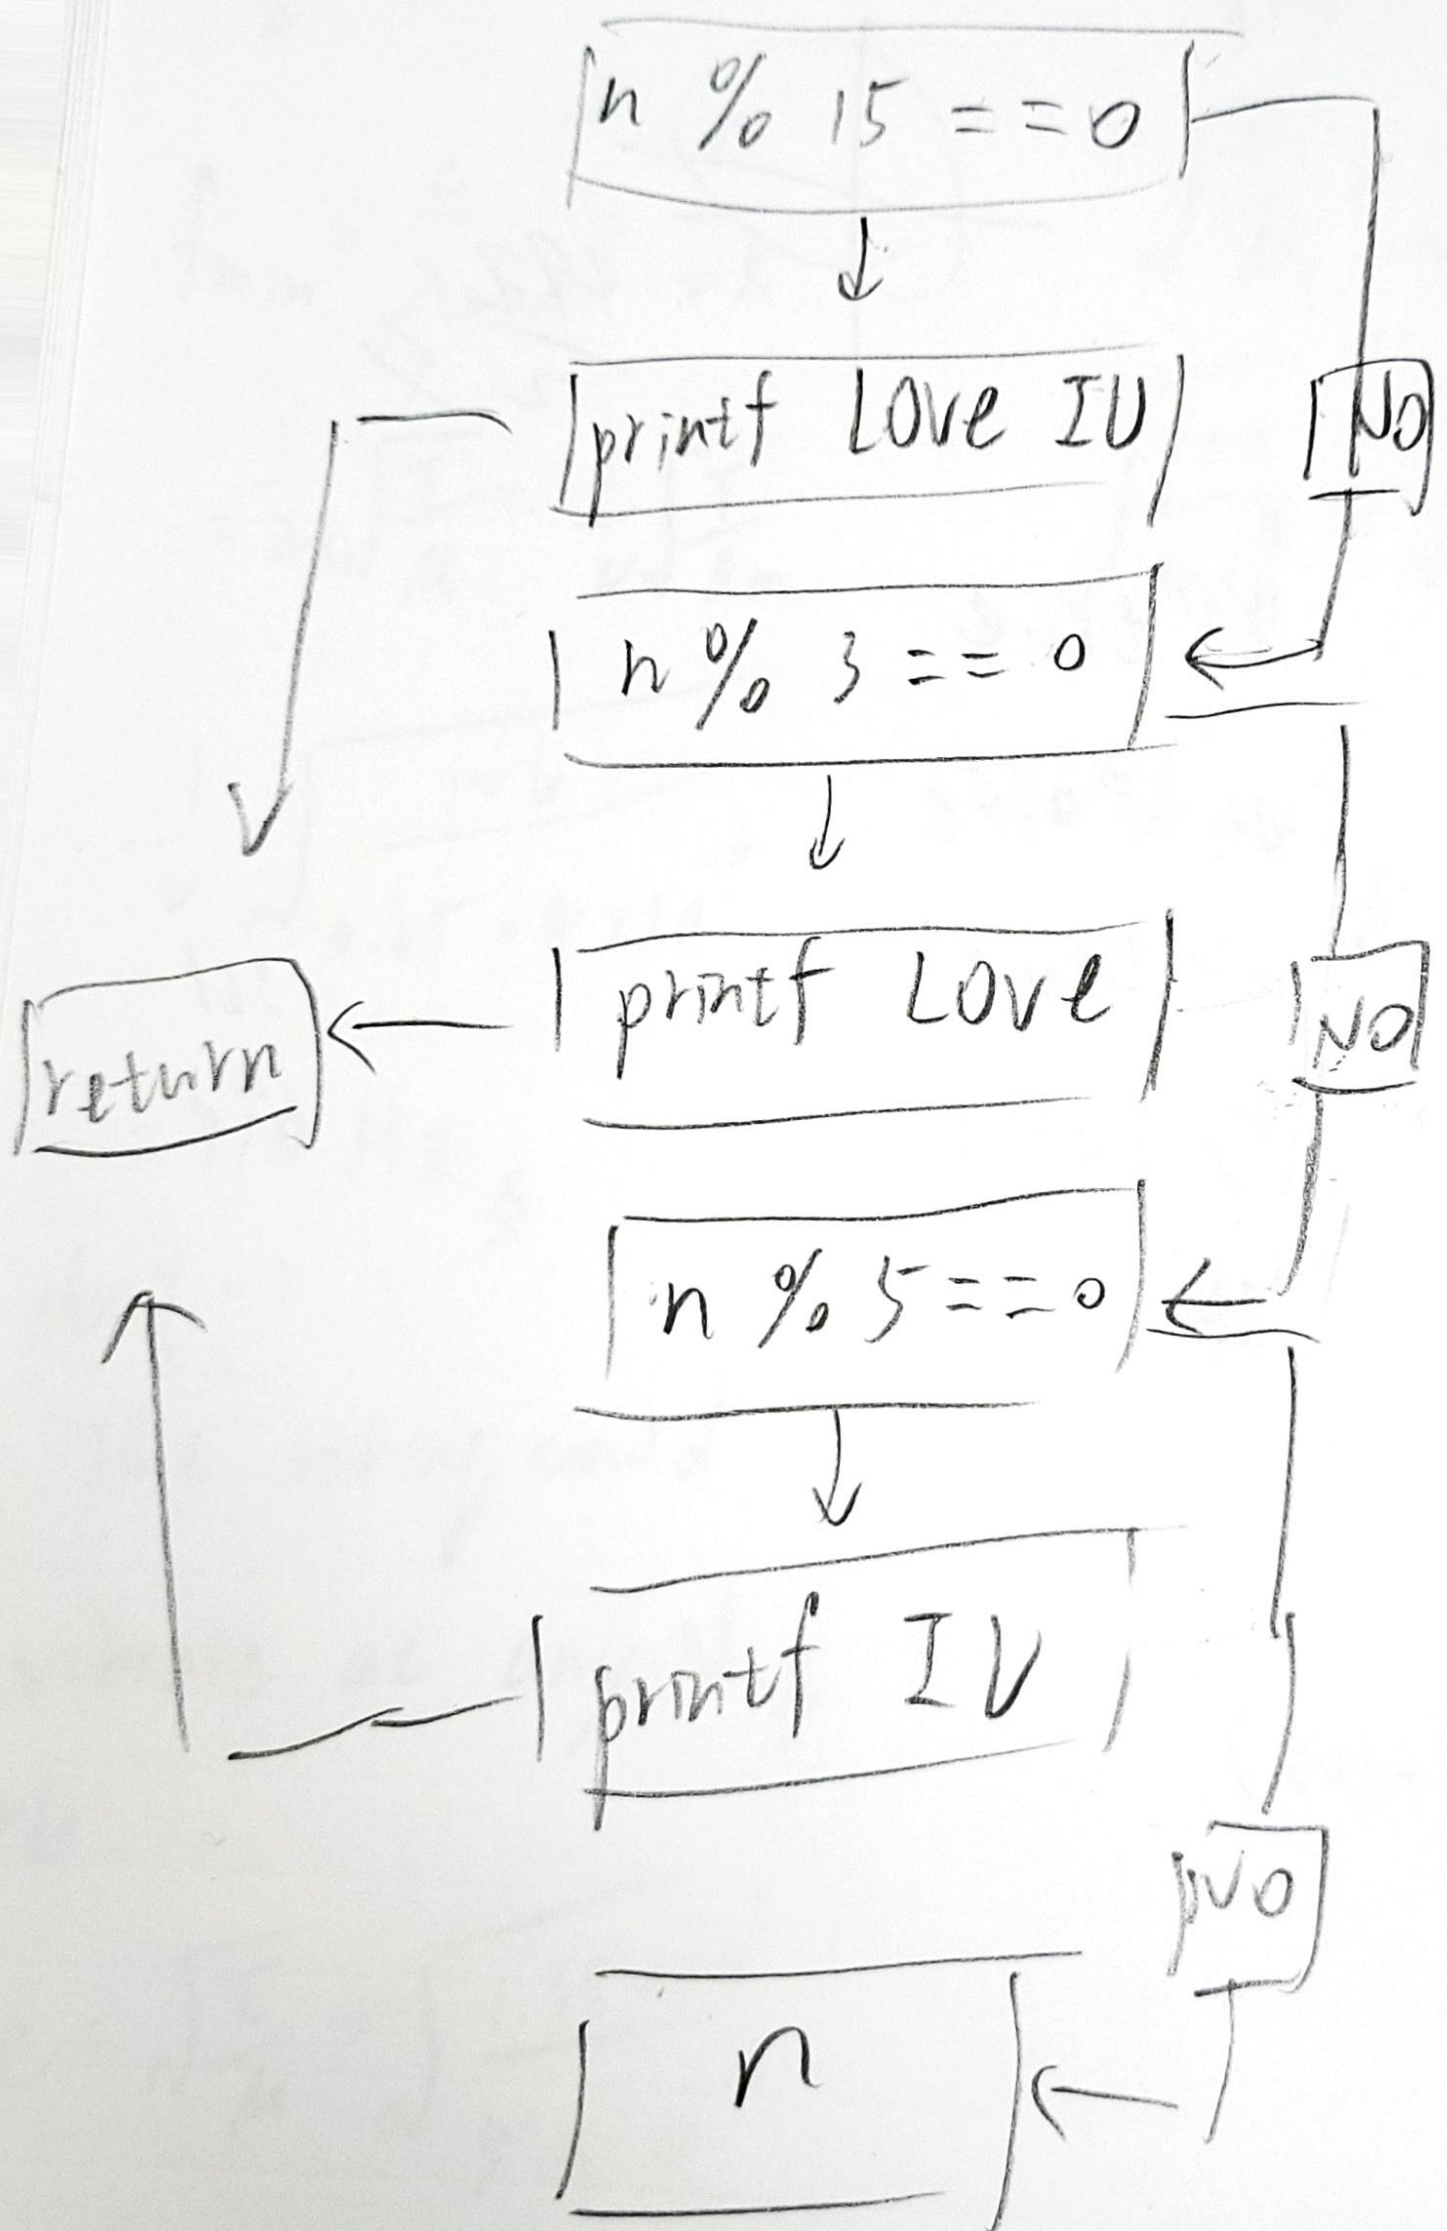 n % 15 == 0
printf Love IU
NO
n % 3 == 0
printf Love
NO
return
n % 5 == 0
printf IU
NO
n